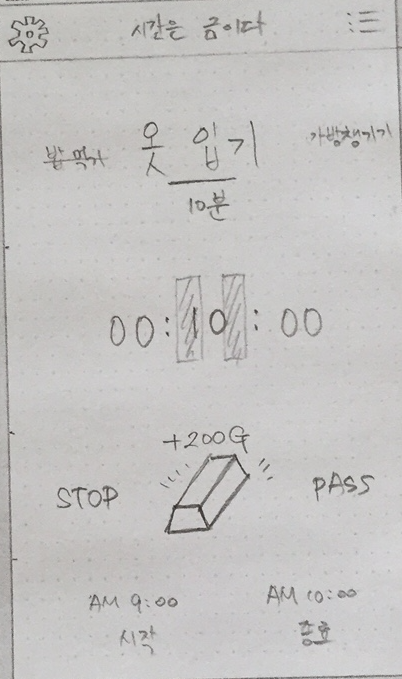 시간은 금이다
밥 먹기 옷 입기 가방챙기기
10분
00:10:00
+200G
STOP PASS
AM 9:00 AM 10:00
시작 종료